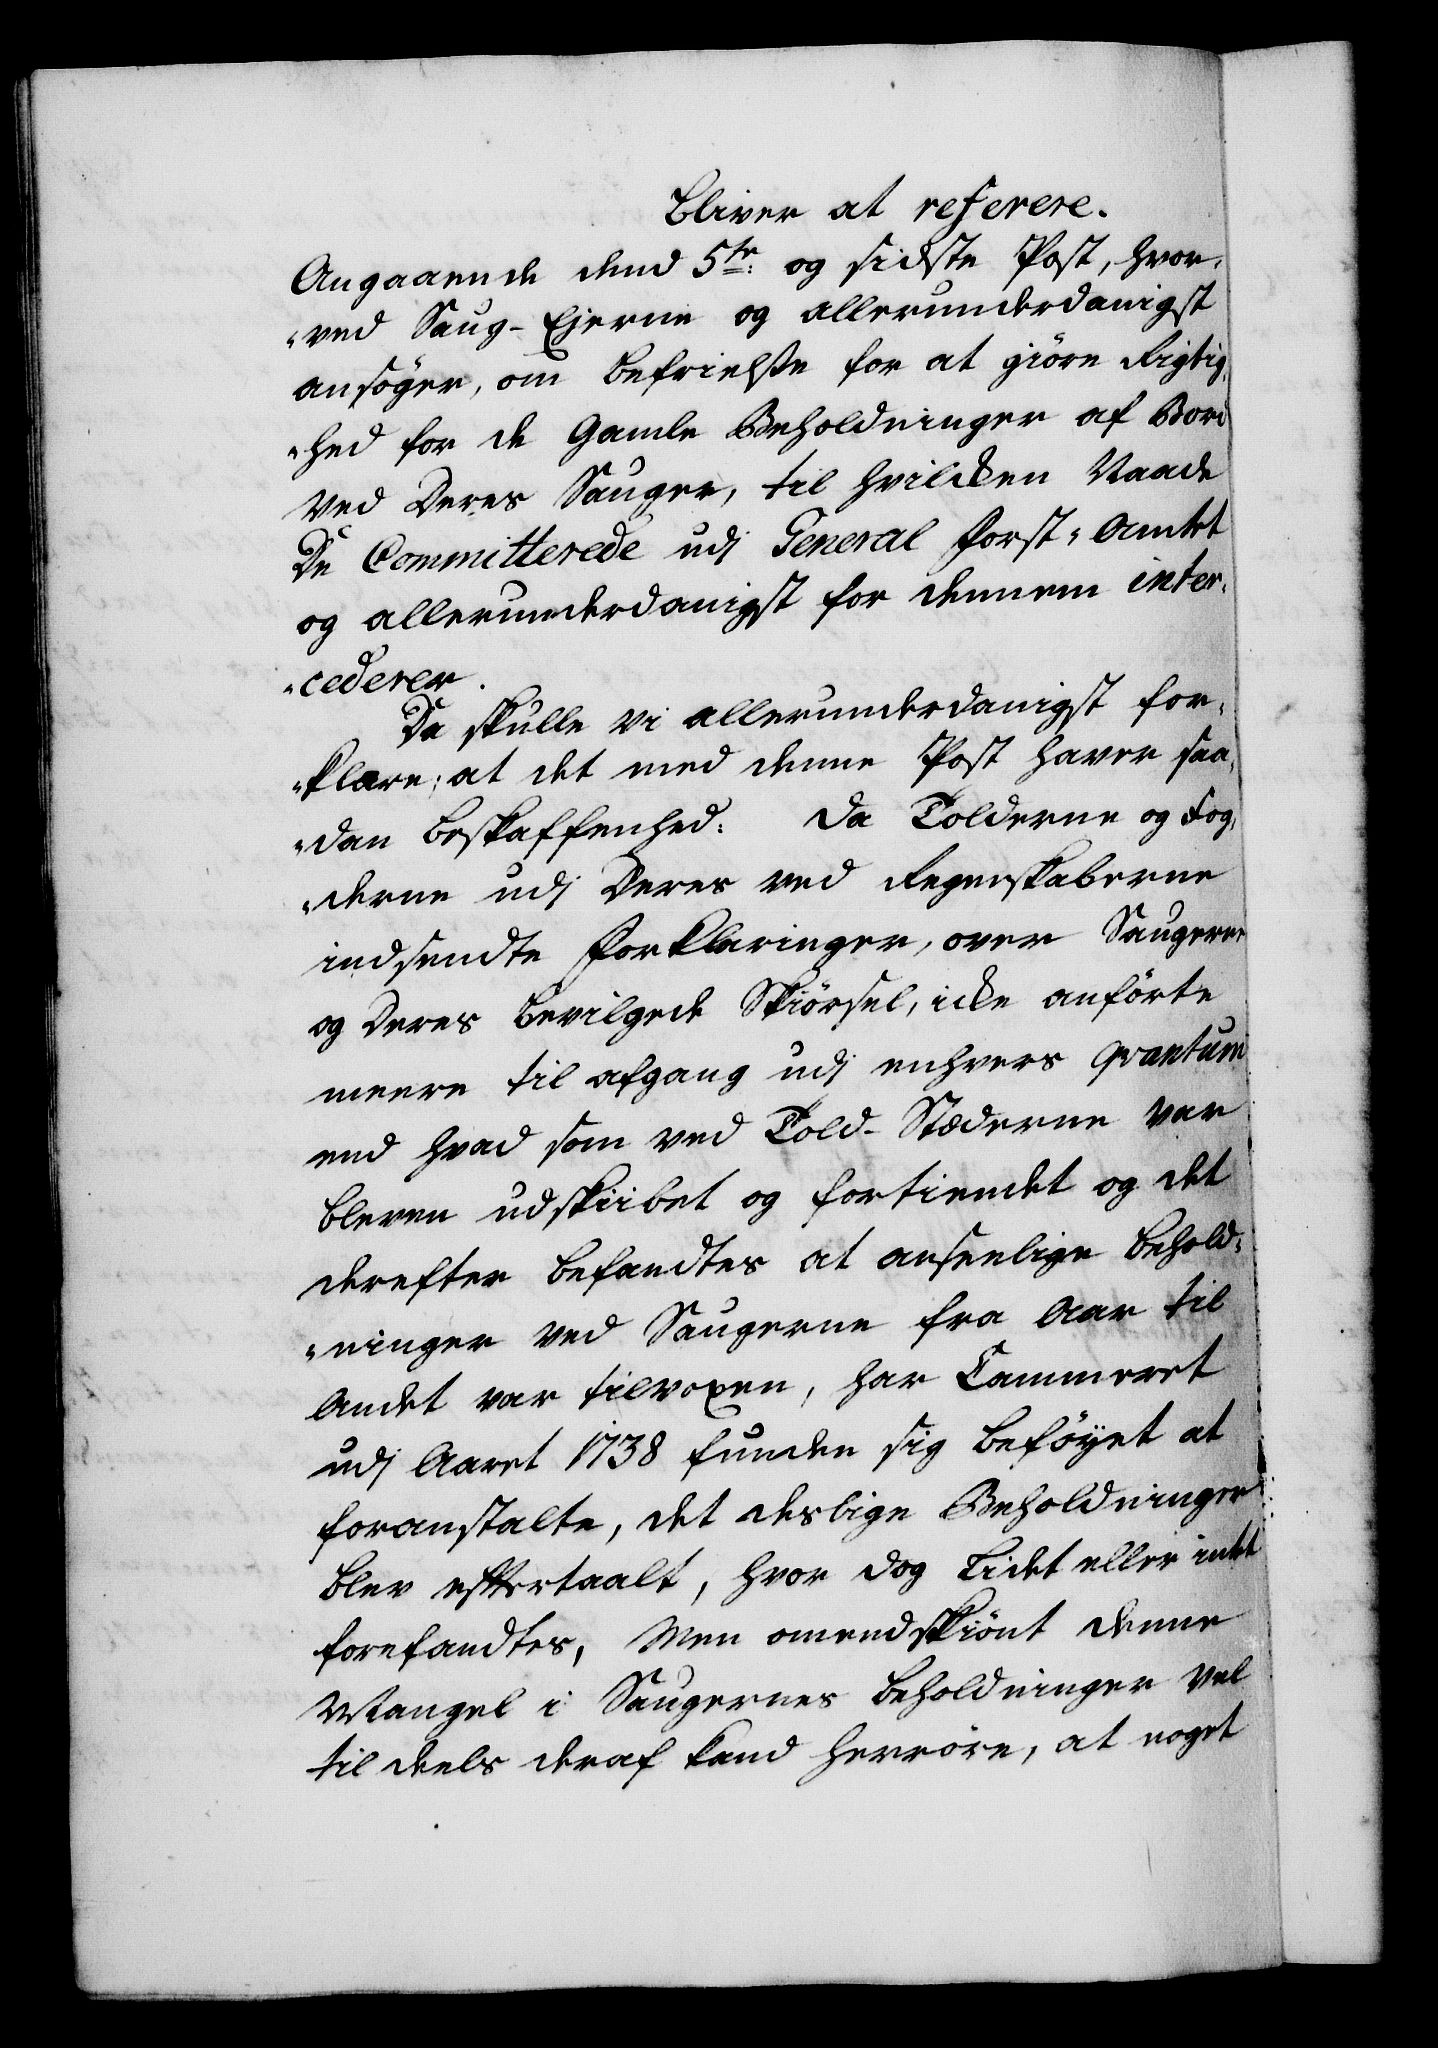 Bliver at referere.
Angaaende dend 5te: og sidste Post, hvor-
-ved Saug-Ejerne og allerunderdanigst
ansøger, om befrielse for at giöre Rigtig-
-hed for de Gamle Beholdninger af Bord
ved Deres Sauger, til hvilcken Naade
De Committerede udj General Forst-Amtet
og allerunderdanigst for dennem inter-
-cederer.
Da skulle vi allerunderdanigst for-
-klare; at det med denne Post haver saa-
-dan beskaffenhed: Da Tolderne og Fog-
-derne udj Deres ved Regenskaberne
indsendte Forklaringer, over Saugerne
og Deres bevilgede Skiörsel, icke anförte
meere til afgang udj enhvers Qvantum
end hvad som ved Told-Stæderne var
bleven udskiibet og fortiendet og det
derefter befandtes at anseelige behold-
-ninger ved Saugerne fra Aar til
Andet var tilvoxen, har Cammeret
udj Aaret 1738 funden sig beföyet at
foranstalte, det deslige Beholdninger
blev eftertaalt, hvor dog Lidet eller intet
forefandtes, Men omendskiönt denne
Mangel i Saugernes beholdninger vel
til deels deraf kand herröre, at noget